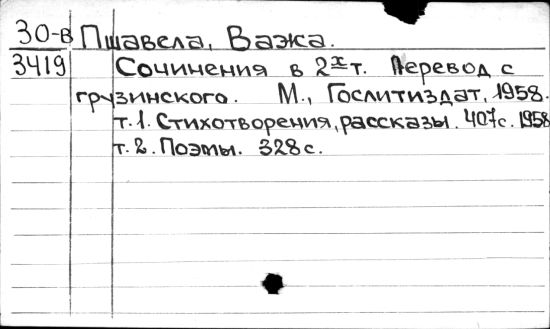 30-в Пшавела, Важа.
3419 Сочинения в 2х т. Перевод с
грузинского. М., Гослитиздат, 1958.
т.1. Стихотворения, рассказы. 407с. 1958
т.2. Поэмы. 328с.